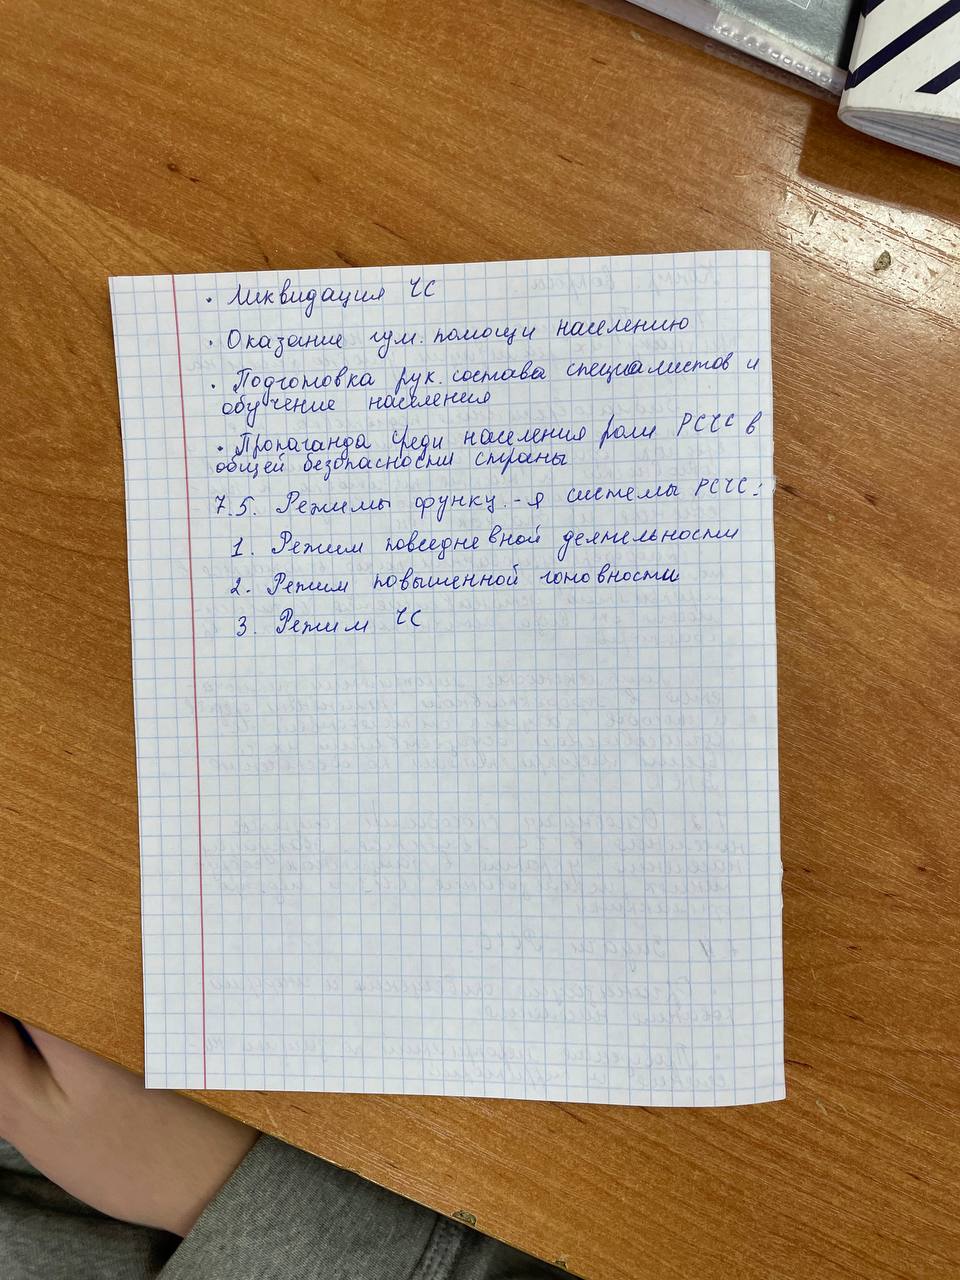 · Ликвидация ЧС
· Оказание гум. помощи населению
· Подготовка рук. состава специалистов и
обучение населения
· Пропаганда среди населения роли РСЧС в
общей безопасности страны
7.5. Режимы функц.-я системы РСЧС:
1. Режим повседневной деятельности
2. Режим повышенной готовности
3. Режим ЧС